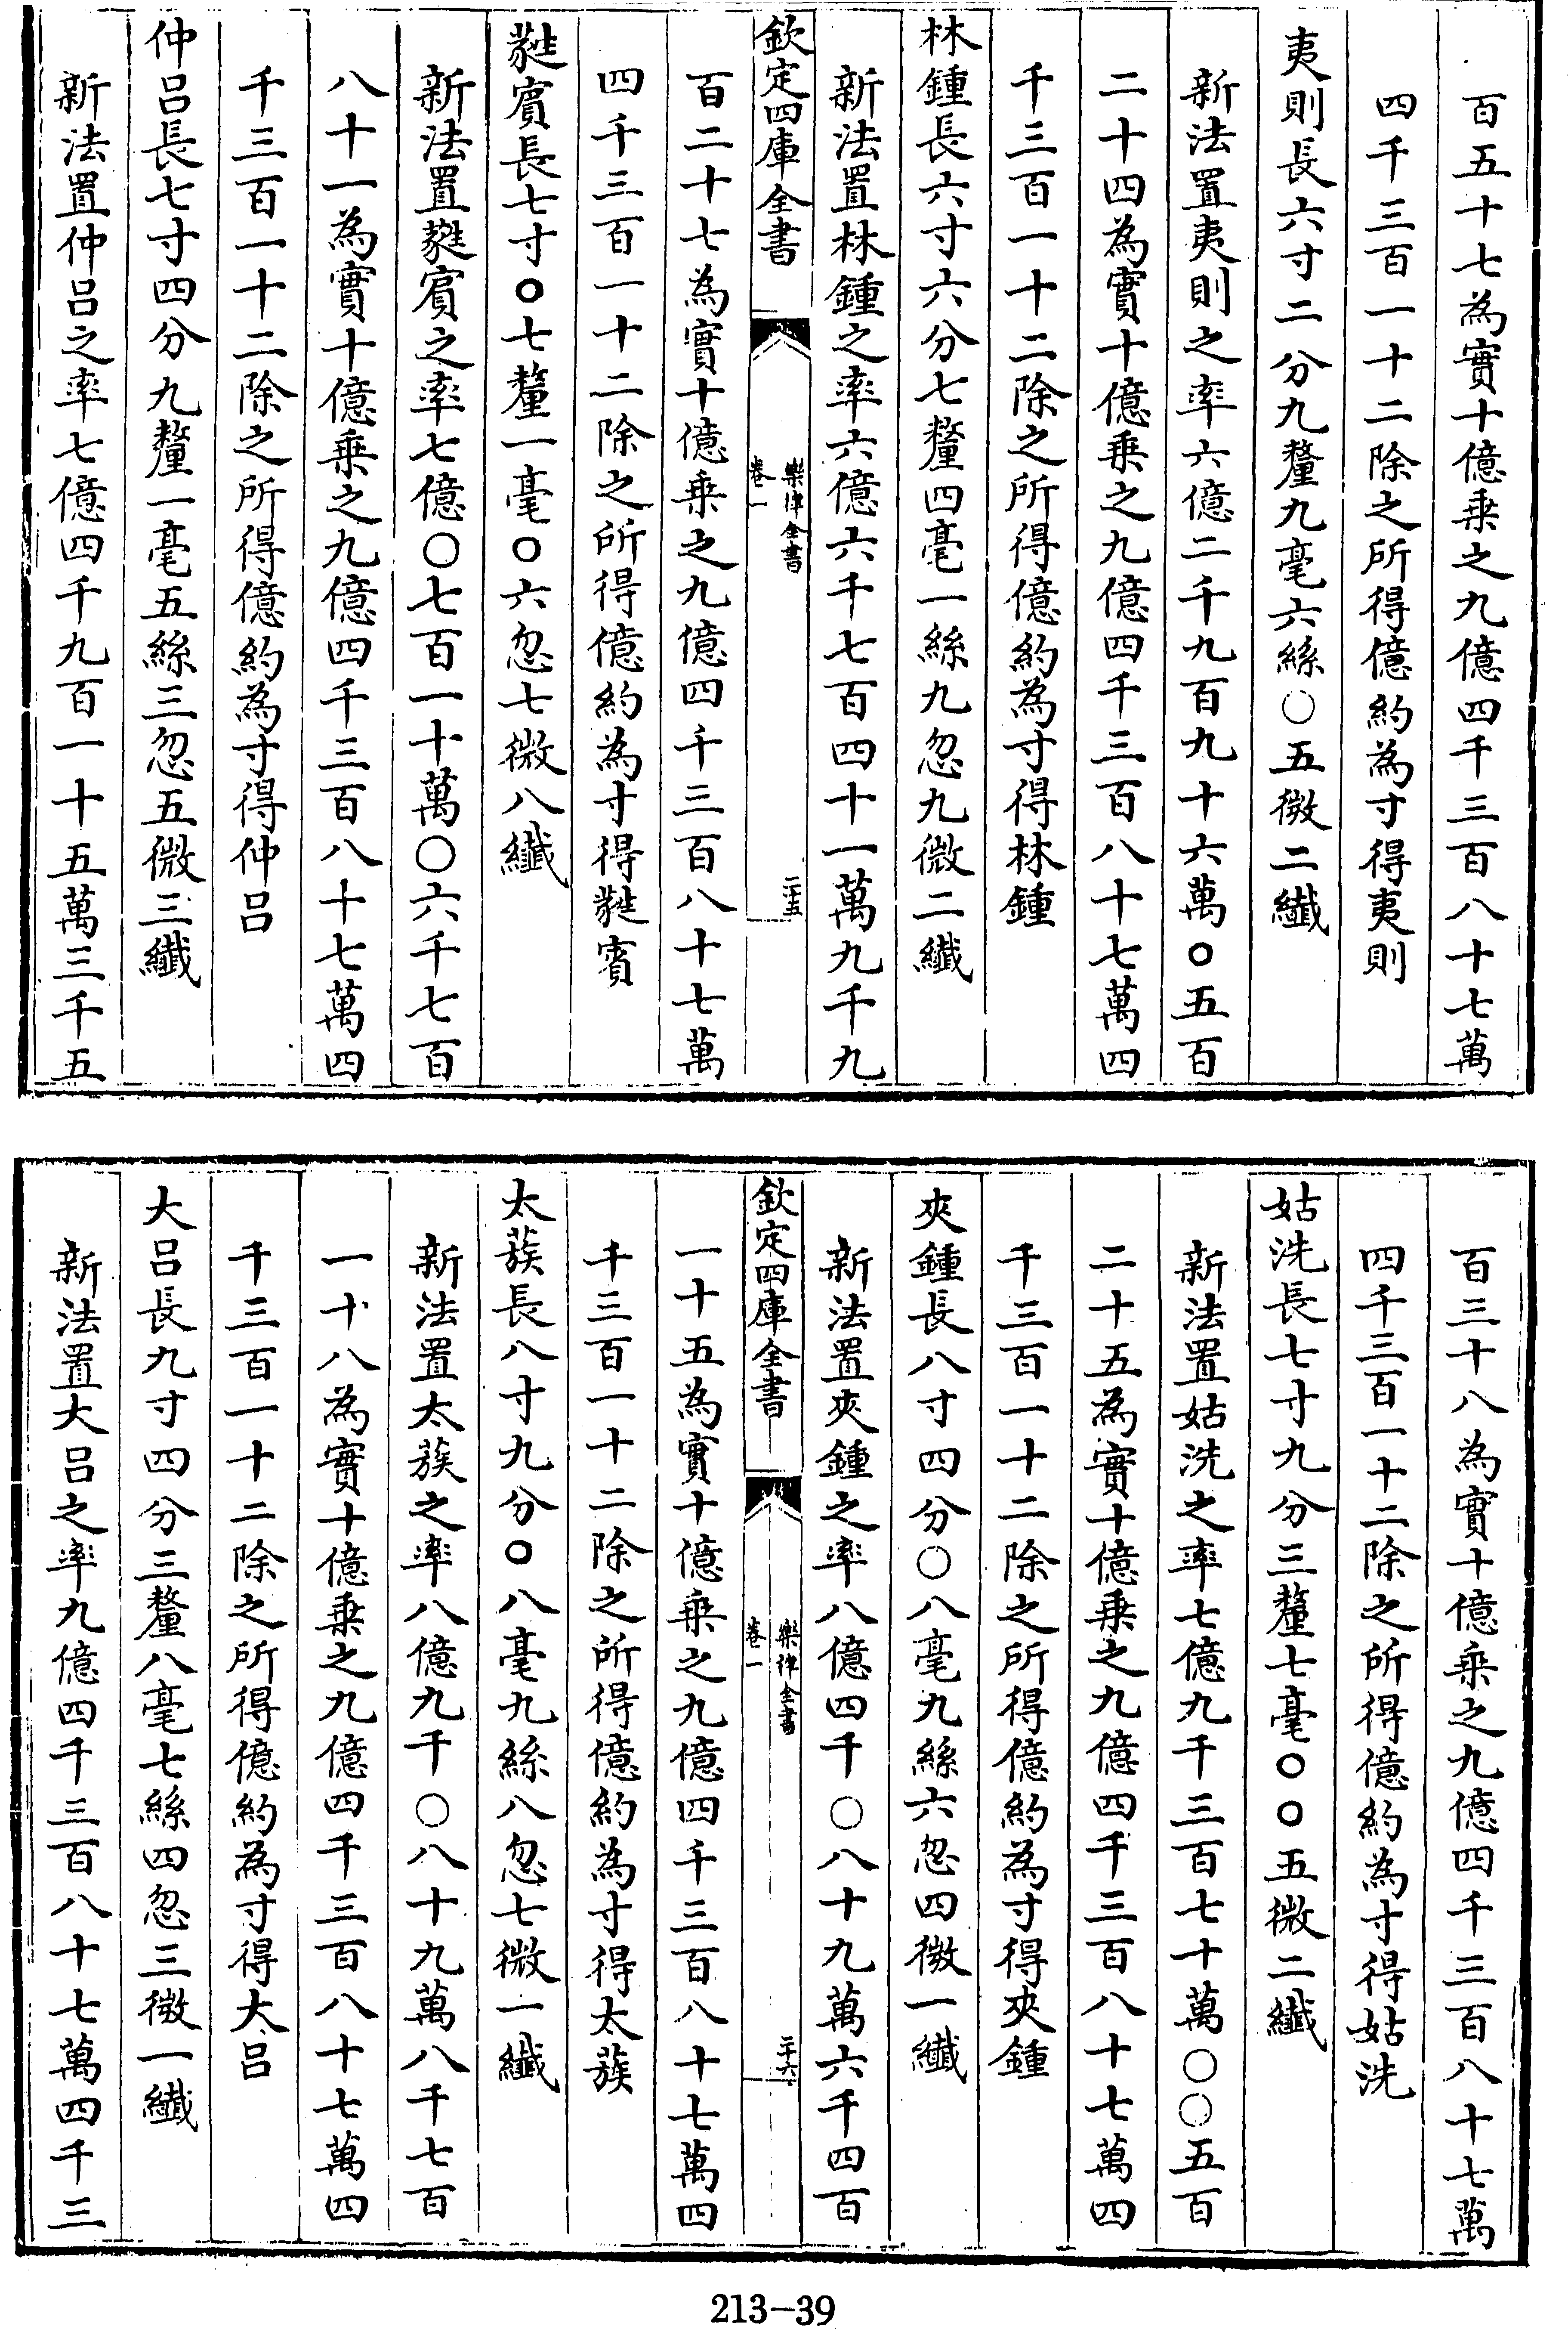 百五十七為實十億乗之九億四千三百八十七萬
四千三百一十二除之所得億約為寸得夷則
夷則長六寸二分九釐九毫六絲○五微二纖
新法置夷則之率六億二千九百九十六萬○五百
二十四為實十億乗之九億四千三百八十七萬四
千三百一十二除之所得億約為寸得林鍾
林鍾長六寸六分七釐四毫一絲九忽九微二纖
新法置林鍾之率六億六千七百四十一萬九千九
欽定四庫全書
樂律全書
卷一
二十五
百二十七為實十億乗之九億四千三百八十七萬
四千三百一十二除之所得億約為寸得蕤賓
蕤賓長七寸○七釐一毫○六忽七微八纖
新法置蕤賓之率七億○七百一十萬○六千七百
八十一為實十億乗之九億四千三百八十七萬四
千三百一十二除之所得億約為寸得仲呂
仲呂長七寸四分九釐一毫五絲三忽五微三纖
新法置仲呂之率七億四千九百一十五萬三千五
百三十八為實十億乗之九億四千三百八十七萬
四千三百一十二除之所得億約為寸得姑洗
姑洗長七寸九分三釐七毫○○五微二纖
新法置姑洗之率七億九千三百七十萬○○五百
二十五為實十億乗之九億四千三百八十七萬四
千三百一十二除之所得億約為寸得夾鍾
夾鍾長八寸四分○八毫九絲六忽四微一纖
新法置夾鍾之率八億四千○八十九萬六千四百
欽定四庫全書
樂律全書
卷一
二十六
一十五為實十億乗之九億四千三百八十七萬四
千三百一十二除之所得億約為寸得太蔟
太蔟長八寸九分○八毫九絲八忽七微一纖
新法置太蔟之率八億九千○八十九萬八千七百
一十八為實十億乗之九億四千三百八十七萬四
千三百一十二除之所得億約為寸得大呂
大呂長九寸四分三釐八毫七絲四忽三微一纖
新法置大呂之率九億四千三百八十七萬四千三
213-39